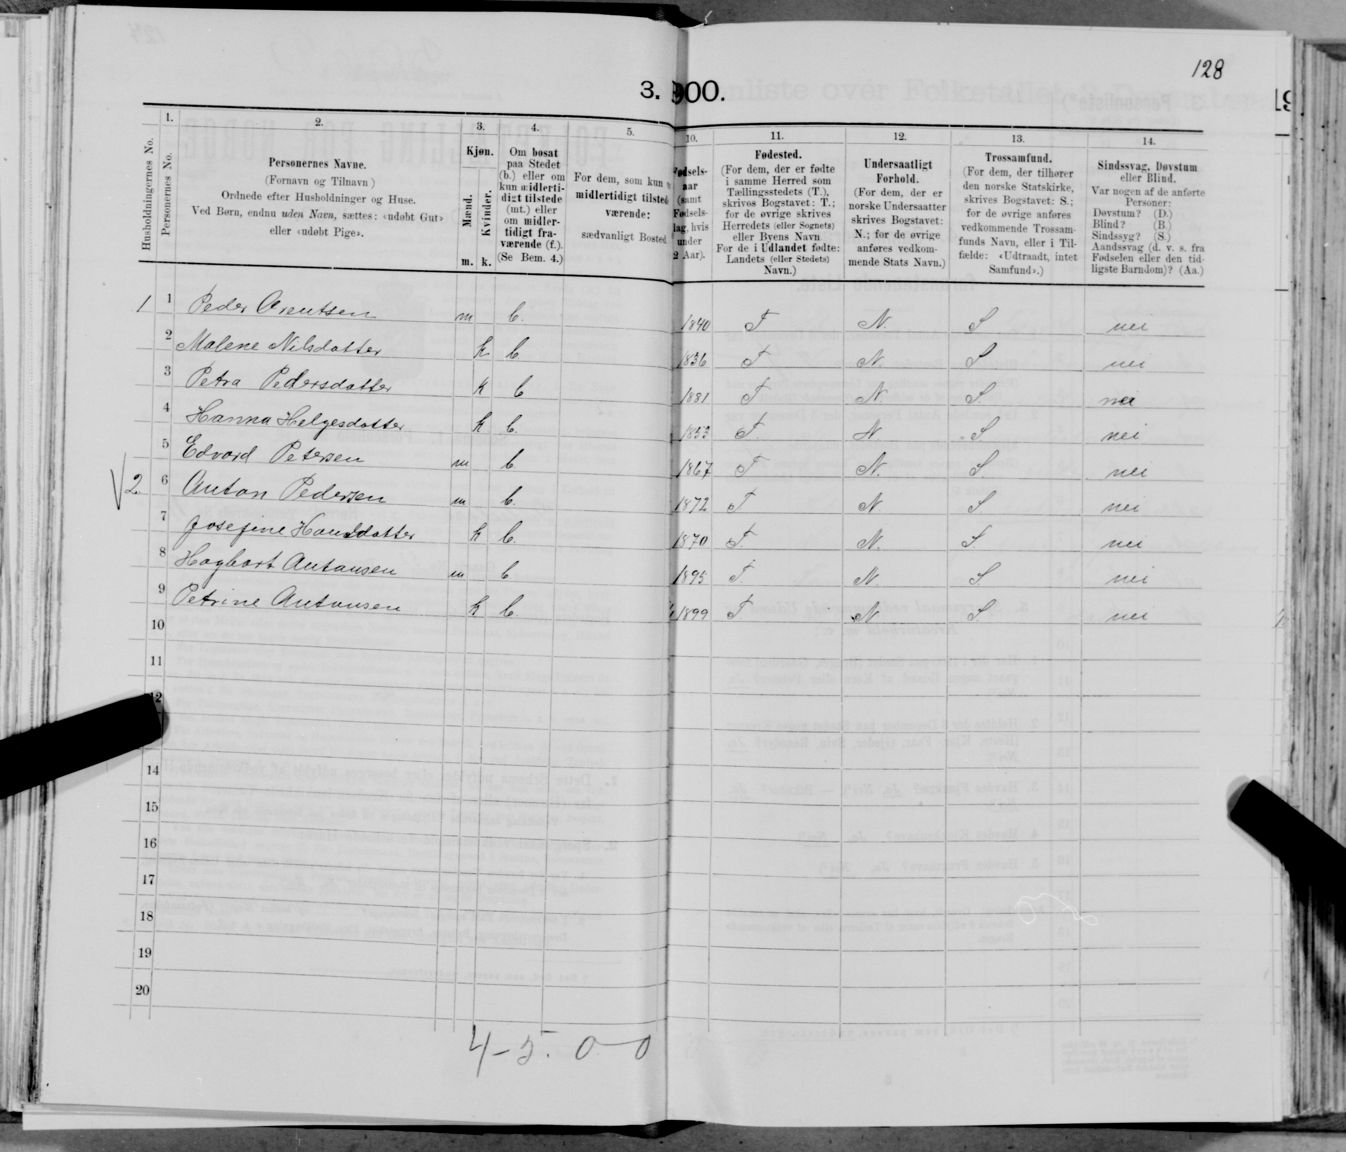 128
3. 900.
1. 2. 3. 4. 5. 10. 11. 12. 13. 14.
Husholdningernes No.
Personernes No.
Personernes Navne.
(Fornavn og Tilnavn)
Ordnede efter Husholdninger og Huse.
Ved Børn, endnu uden Navn, sættes: «udøbt Gut»
eller «udøbt Pige».
Kjøn.
Mænd.
Kvinder.
m. k.
Om bosat
paa Stedet
(b.) eller om
kun midlerti-
digt tilstede
(mt.) eller
om midler-
tidigt fra-
værende (f.).
(Se Bem. 4.)
For dem, som kun
midlertidigt tilstede
værende:
sædvanligt Bosted
Fødsels-
aar
(samt
Fødsels-
dag, hvis
under
2 Aar).
Fødested.
(For dem, der er fødte
i samme Herred som
Tællingsstedets (T.),
skrives Bogstavet: T.;
for de øvrige skrives
Herredets (eller Sognets)
eller Byens Navn
For de i Udlandet fødte:
Landets (eller Stedets)
Navn.)
Undersaatligt
Forhold.
(For dem, der er
norske Undersaatter
skrives Bogstavet:
N.; for de øvrige
anføres vedkom-
mende Stats Navn.)
Trossamfund.
(For dem, der tilhører
den norske Statskirke,
skrives Bogstavet: S.;
for de øvrige anføres
vedkommende Trossam-
funds Navn, eller i Til-
fælde: «Udtraadt, intet
Samfund».)
Sindssvag, Døvstum
eller Blind.
Var nogen af de anførte
Personer:
Døvstum? (D.)
Blind? (B.)
Sindssyg? (S.)
Aandssvag (d. v. s. fra
Fødselen eller den tid-
ligste Barndom)? (Aa.)
1 1 Peder Arentsen m b. 1840 T N. S nei
2 Malene Nilsdatter k b 1836 T N. S nei
3 Petra Pedersdatter k b 1881 T N S nei
4 Hanna Helgesdatter k b. 1853 T. N S nei
5 Edvard Petersen m b 1867 T N. S. nei
2 6 Anton Pedersen m b. 1872 T N S nei
7 Josefine Hansdatter k b. 1870 T N. S. nei
8 Hagbart Antonsen m b 1895 T. N S nei
9 Petrine Antonsen k b 1899 T N S nei
10
11
12
14
15
16
17
18
19
20
4-5. 0-0